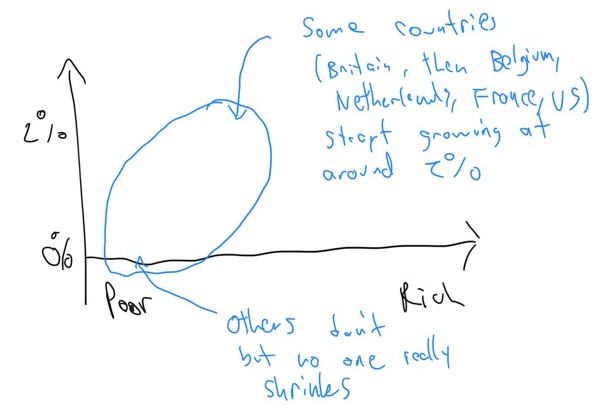 Some countries
(Britain, then Belgium,
Netherlands, France, US)
start growing at
around 2%
2%
0%
Poor
Rich
Others don't
but no one really
shrinks